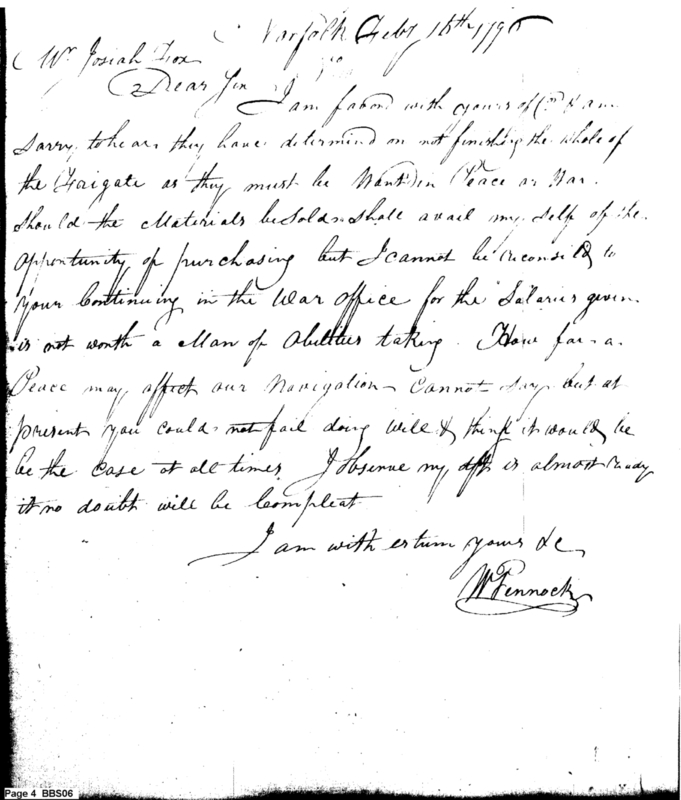 Norfolk Feby 15th 1796
Mr Josiah Fox
Dear Sir
I am favord with yours of & am
sorry to hear they have determind on not finishing the whole of
the Fraigate as they must be Wanted in Peace or War.
should the Materials be Sold shall avail my self of the
opportunity of purchasing but I cannot be reconsild to
your Continuing in the War office for the Salaries given
is not worth a Man of Abilities taking. How far a
Peace may affect our Navigation Cannot say but at
present you could not fail doing well & think it would be
be the case at all times I observe my dft is almost ready
it no doubt will be Compleat
I am with esteem yours &c
Wm Pennock
Page 4 BBS06